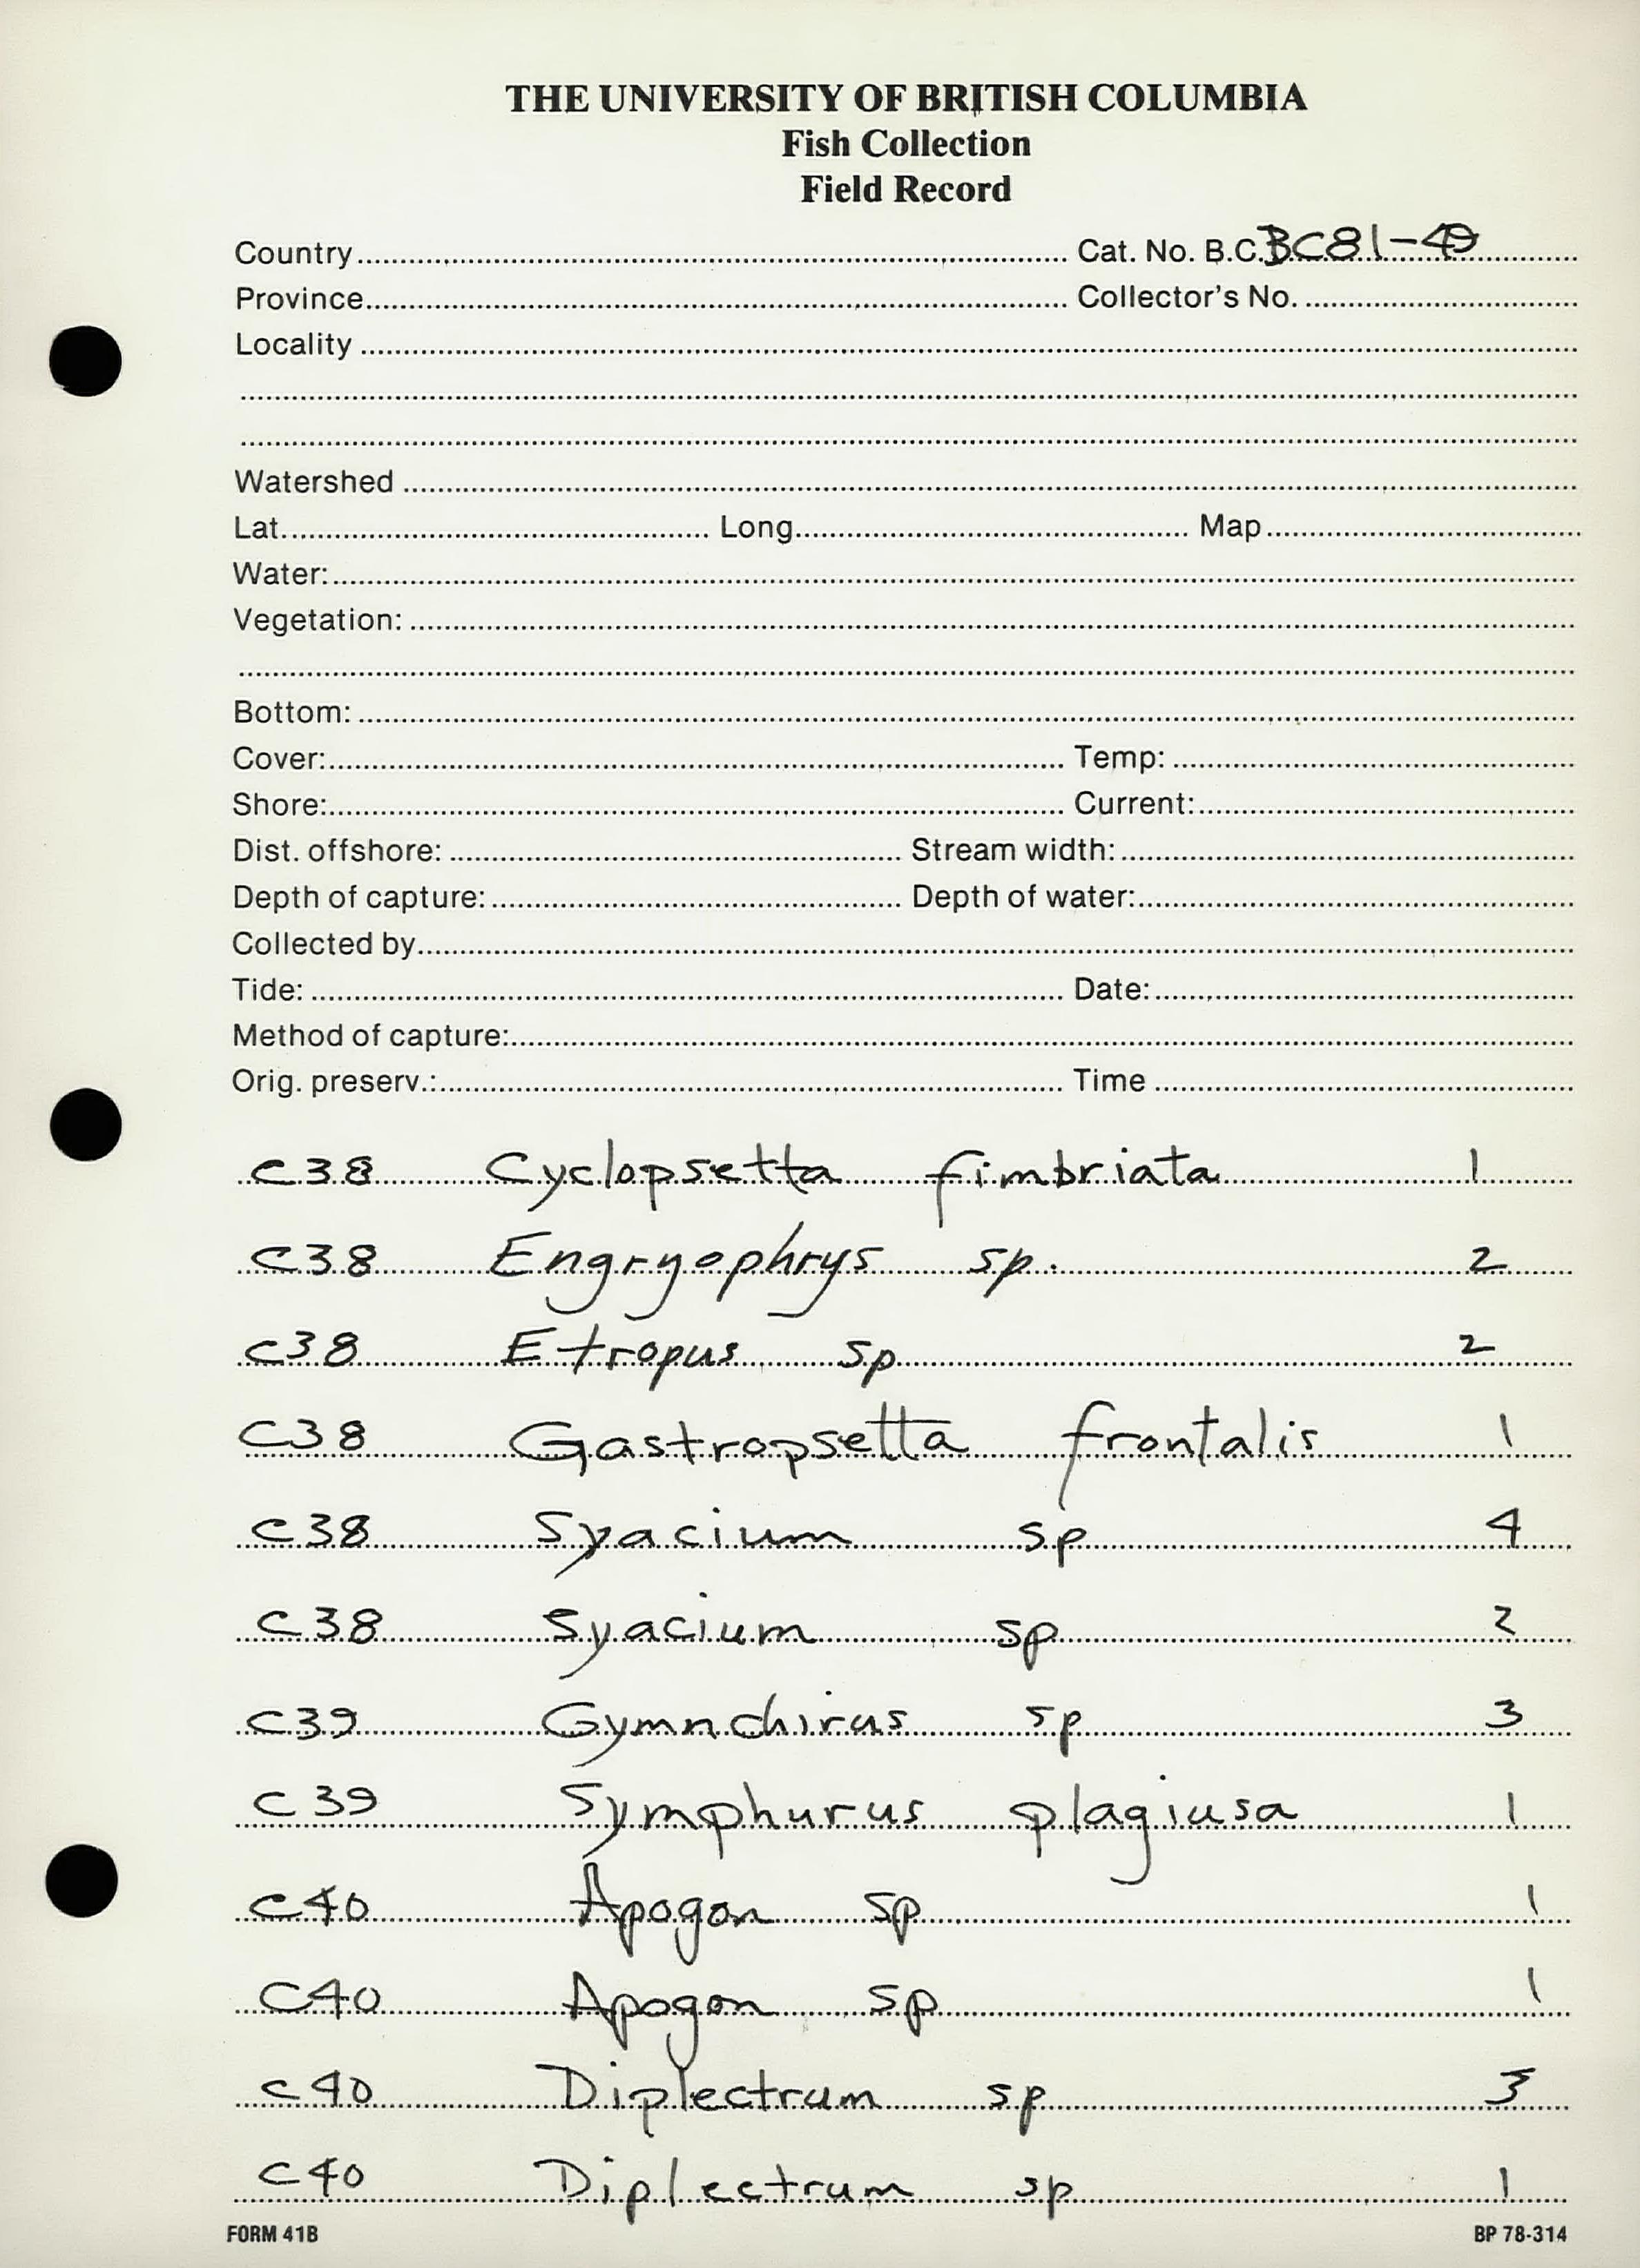 THE UNIVERSITY OF BRITISH COLUMBIA
Fish Collection
Field Record
Country Cat. No. B.C. BC81-49
Province Collector's No.
Locality
Watershed
Lat. Long. Map
Water:
Vegetation:
Bottom:
Cover: Temp:
Shore: Current:
Dist. offshore: Stream width:
Depth of capture: Depth of water:
Collected by
Tide: Date:
Method of capture:
Orig. preserv.: Time
C38 Cyclopsetta fimbriata 1
C38 Engryophrys sp. 2
C38 Etropus sp 2
C38 Gastropsetta frontalis 1
C38 Syacium sp 4
C38 Syacium sp 2
C39 Gymnchirus sp 3
C39 Symphurus plagiusa 1
C40 Apogon sp 1
C40 Apogon sp 1
C40 Diplectrum sp 3
C40 Diplectrum sp 1
FORM 41B BP 78-314